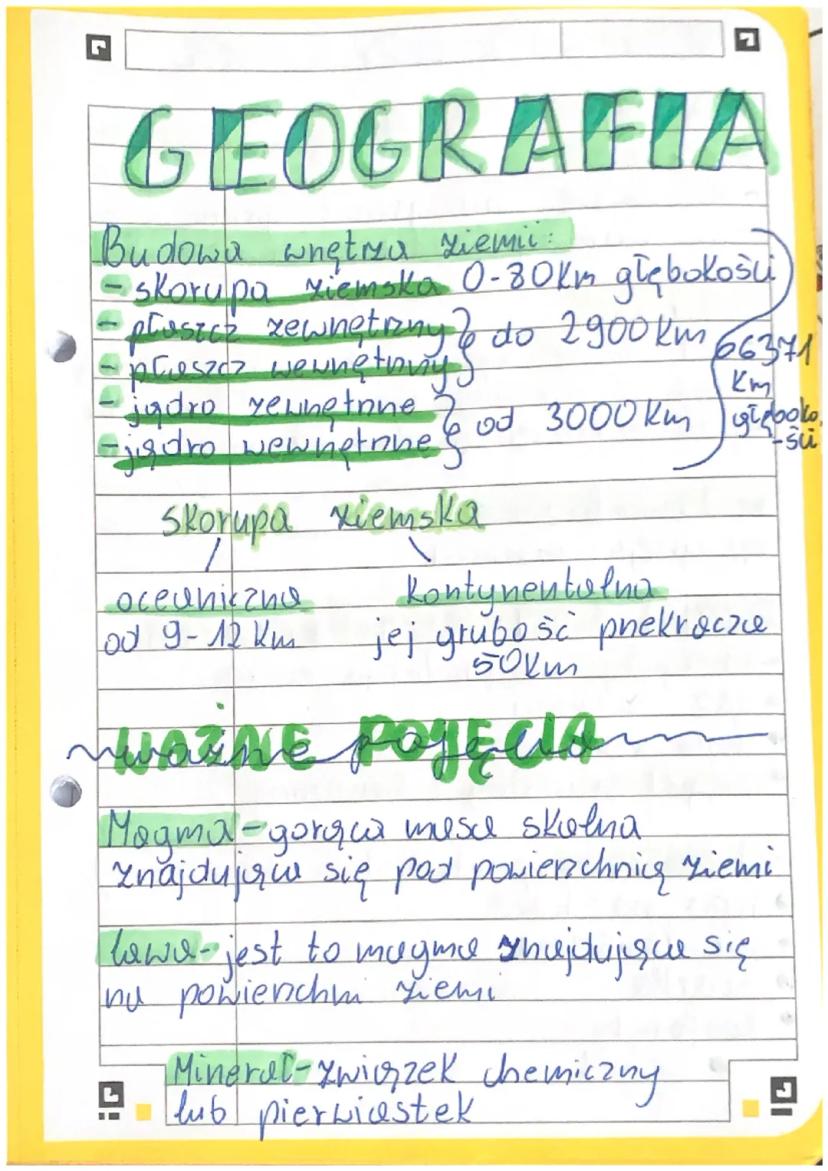 GEOGRAFIA
Budowa wnętrza ziemii:
- skorupa ziemska 0-80km głębokości
- płaszcz zewnętrzny
- płaszcz wewnętrzny
} do 2900 km
- jądro zewnętrzne
- jądro wewnętrzne
} od 3000 km
66371
km
głęboko
-ści
skorupa ziemska
oceaniczna
od 9-12 km
kontynentalna
jej grubość przekracza
50km
WAŻNE POJĘCIA
ważne pojęcia
Magma - gorąca masa skalna
znajdująca się pod powierzchnią ziemi
lawa - jest to magma znajdująca się
na powierzchni ziemi
Minerał - związek chemiczny
lub pierwiastek